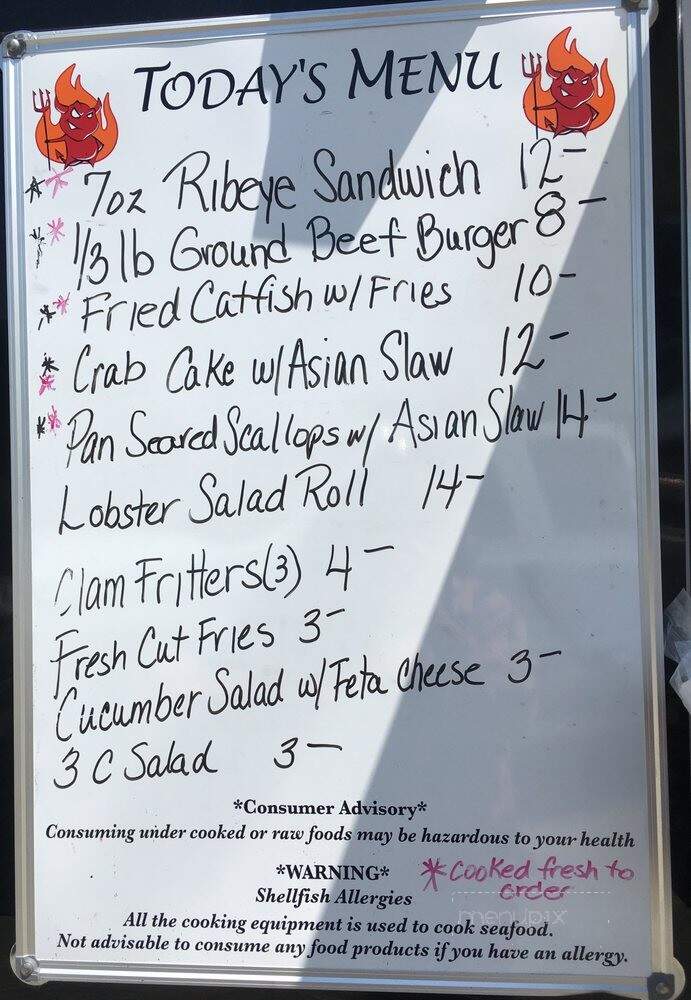 TODAY'S MENU
** 7oz Ribeye Sandwich 12-
** 1/3 lb Ground Beef Burger 8-
** Fried Catfish w/ Fries 10-
** Crab Cake w/ Asian Slaw 12-
** Pan Seared Scallops w/ Asian Slaw 14-
Lobster Salad Roll 14-
Clam Fritters (3) 4-
Fresh Cut Fries 3-
Cucumber Salad w/ Feta Cheese 3-
3 C Salad 3-
*Consumer Advisory*
Consuming under cooked or raw foods may be hazardous to your health
*WARNING*
* Cooked fresh to
order
Shellfish Allergies
menupix
All the cooking equipment is used to cook seafood.
Not advisable to consume any food products if you have an allergy.